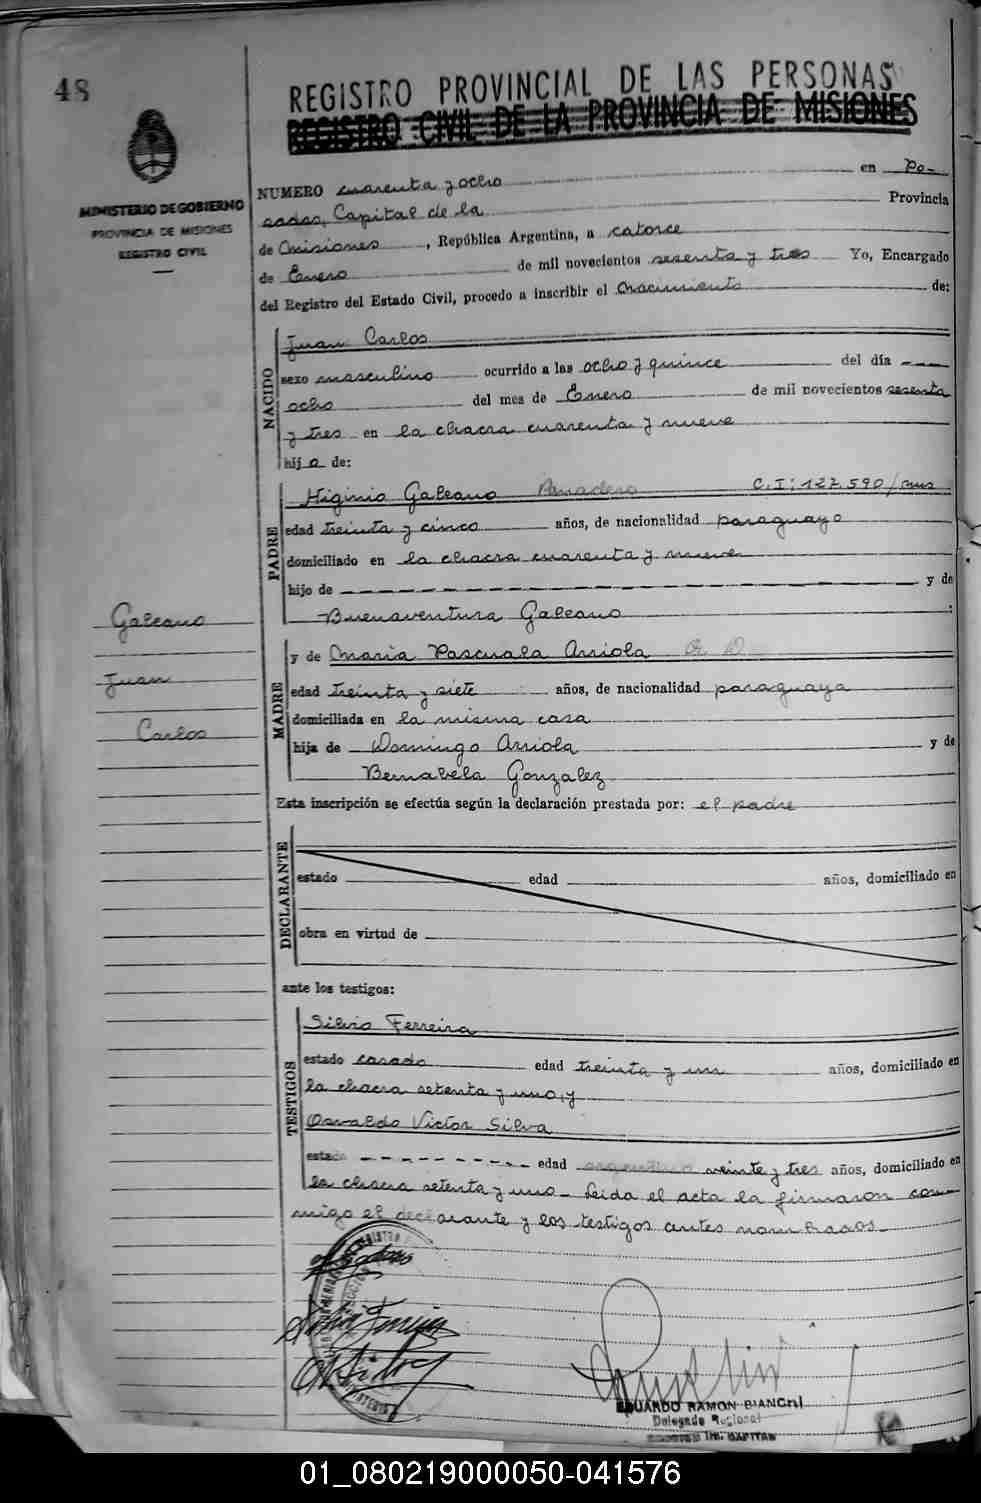 48
REGISTRO PROVINCIAL DE LAS PERSONAS
REGISTRO CIVIL DE LA PROVINCIA DE MISIONES
MINISTERIO DE GOBIERNO
PROVINCIA DE MISIONES
REGISTRO CIVIL
NUMERO cuarenta y ocho en Po-
sadas, Capital de la Provincia
de Misiones, República Argentina, a catorce
de Enero de mil novecientos sesenta y tres Yo, Encargado
del Registro del Estado Civil, procedo a inscribir el Nacimiento de:
NACIDO
Juan Carlos
sexo masculino ocurrido a las ocho y quince del día
ocho del mes de Enero de mil novecientos sesenta
y tres en la chacra cuarenta y nueve
hijo de:
PADRE
Higinio Galeano Panadero C.I: 127.590/mns
edad treinta y cinco años, de nacionalidad paraguayo
domiciliado en la chacra cuarenta y nueve
hijo de y de
Buenaventura Galeano
Galeano
Juan
Carlos
MADRE
y de Maria Pascuala Arriola Q. D.
edad treinta y siete años, de nacionalidad paraguaya
domiciliada en la misma casa
hija de Domingo Arriola y de
Bernabela Gonzalez
Esta inscripción se efectúa según la declaración prestada por: el padre
DECLARANTE
estado edad años, domiciliado en
obra en virtud de
ante los testigos:
TESTIGOS
Silvio Ferreira
estado casado edad treinta y un años, domiciliado en
la chacra setenta y uno, y
Osvaldo Victor Silva
estado edad argentino veinte y tres años, domiciliado en
la chacra setenta y uno - Leida el acta la firmaron con-
migo el declarante y los testigos antes nombrados.-
EDUARDO RAMON BIANCHI
Delegado Regional
01_080219000050-041576